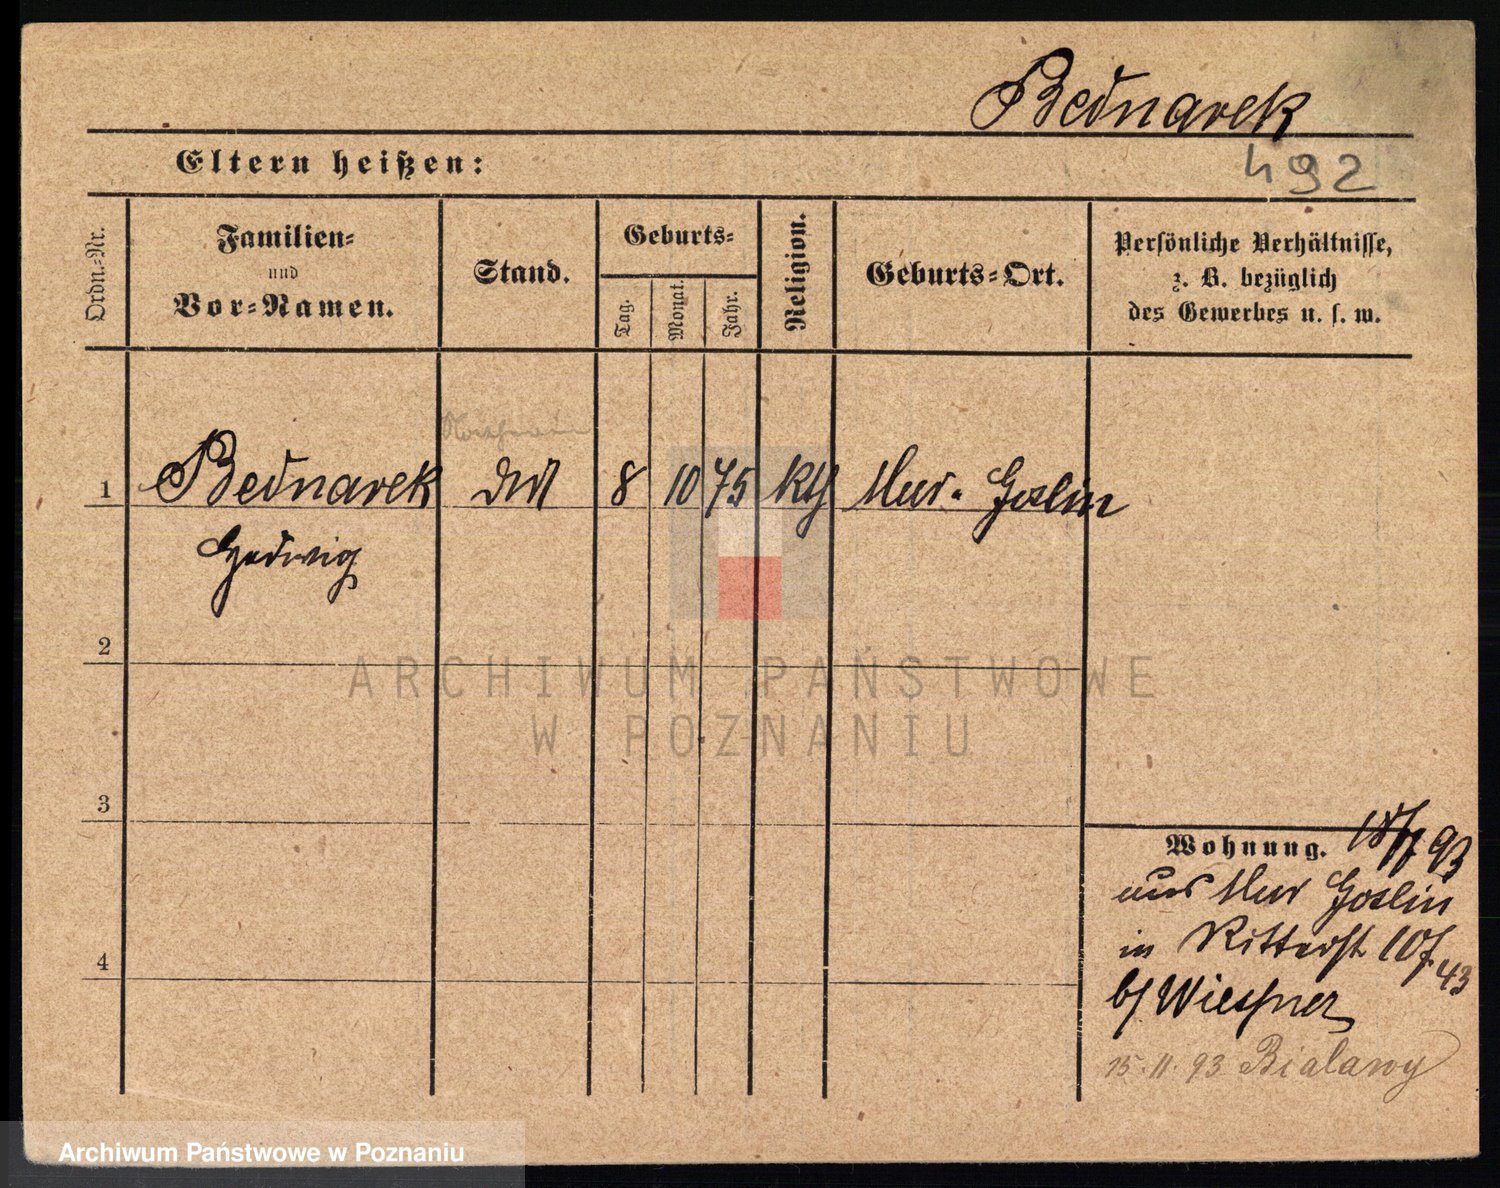 Bednarek
492
Eltern heißen:
Ordn.-Nr.
Familien-
und
Vor-Namen.
Stand.
Geburts-
Tag.
Monat.
Jahr.
Religion.
Geburts-Ort.
Persönliche Verhältnisse,
z. B. bezüglich
des Gewerbes u. s. w.
1 Bednarek 8 10 75 kth Mur. Goslin
Hedwig
2
3
4
Wohnung. 93
aus Mur Goslin
in Ritterst 10 f. 43
b/ Wiessner
15.11.93 Bialawy
ARCHIWUM PAŃSTWOWE
W POZNANIU
Archiwum Państwowe w Poznaniu